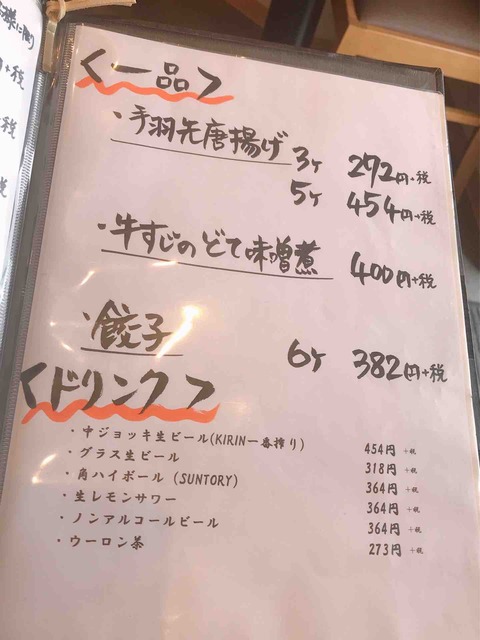 <一品>
・手羽先唐揚げ 3ヶ 292円+税
5ヶ 454円+税
・牛すじのどて味噌煮 400円+税
・餃子 6ヶ 382円+税
<ドリンク>
・中ジョッキ生ビール(KIRIN一番搾り) 454円 +税
・グラス生ビール 318円 +税
・角ハイボール (SUNTORY) 364円 +税
・生レモンサワー 364円 +税
・ノンアルコールビール 364円 +税
・ウーロン茶 273円 +税